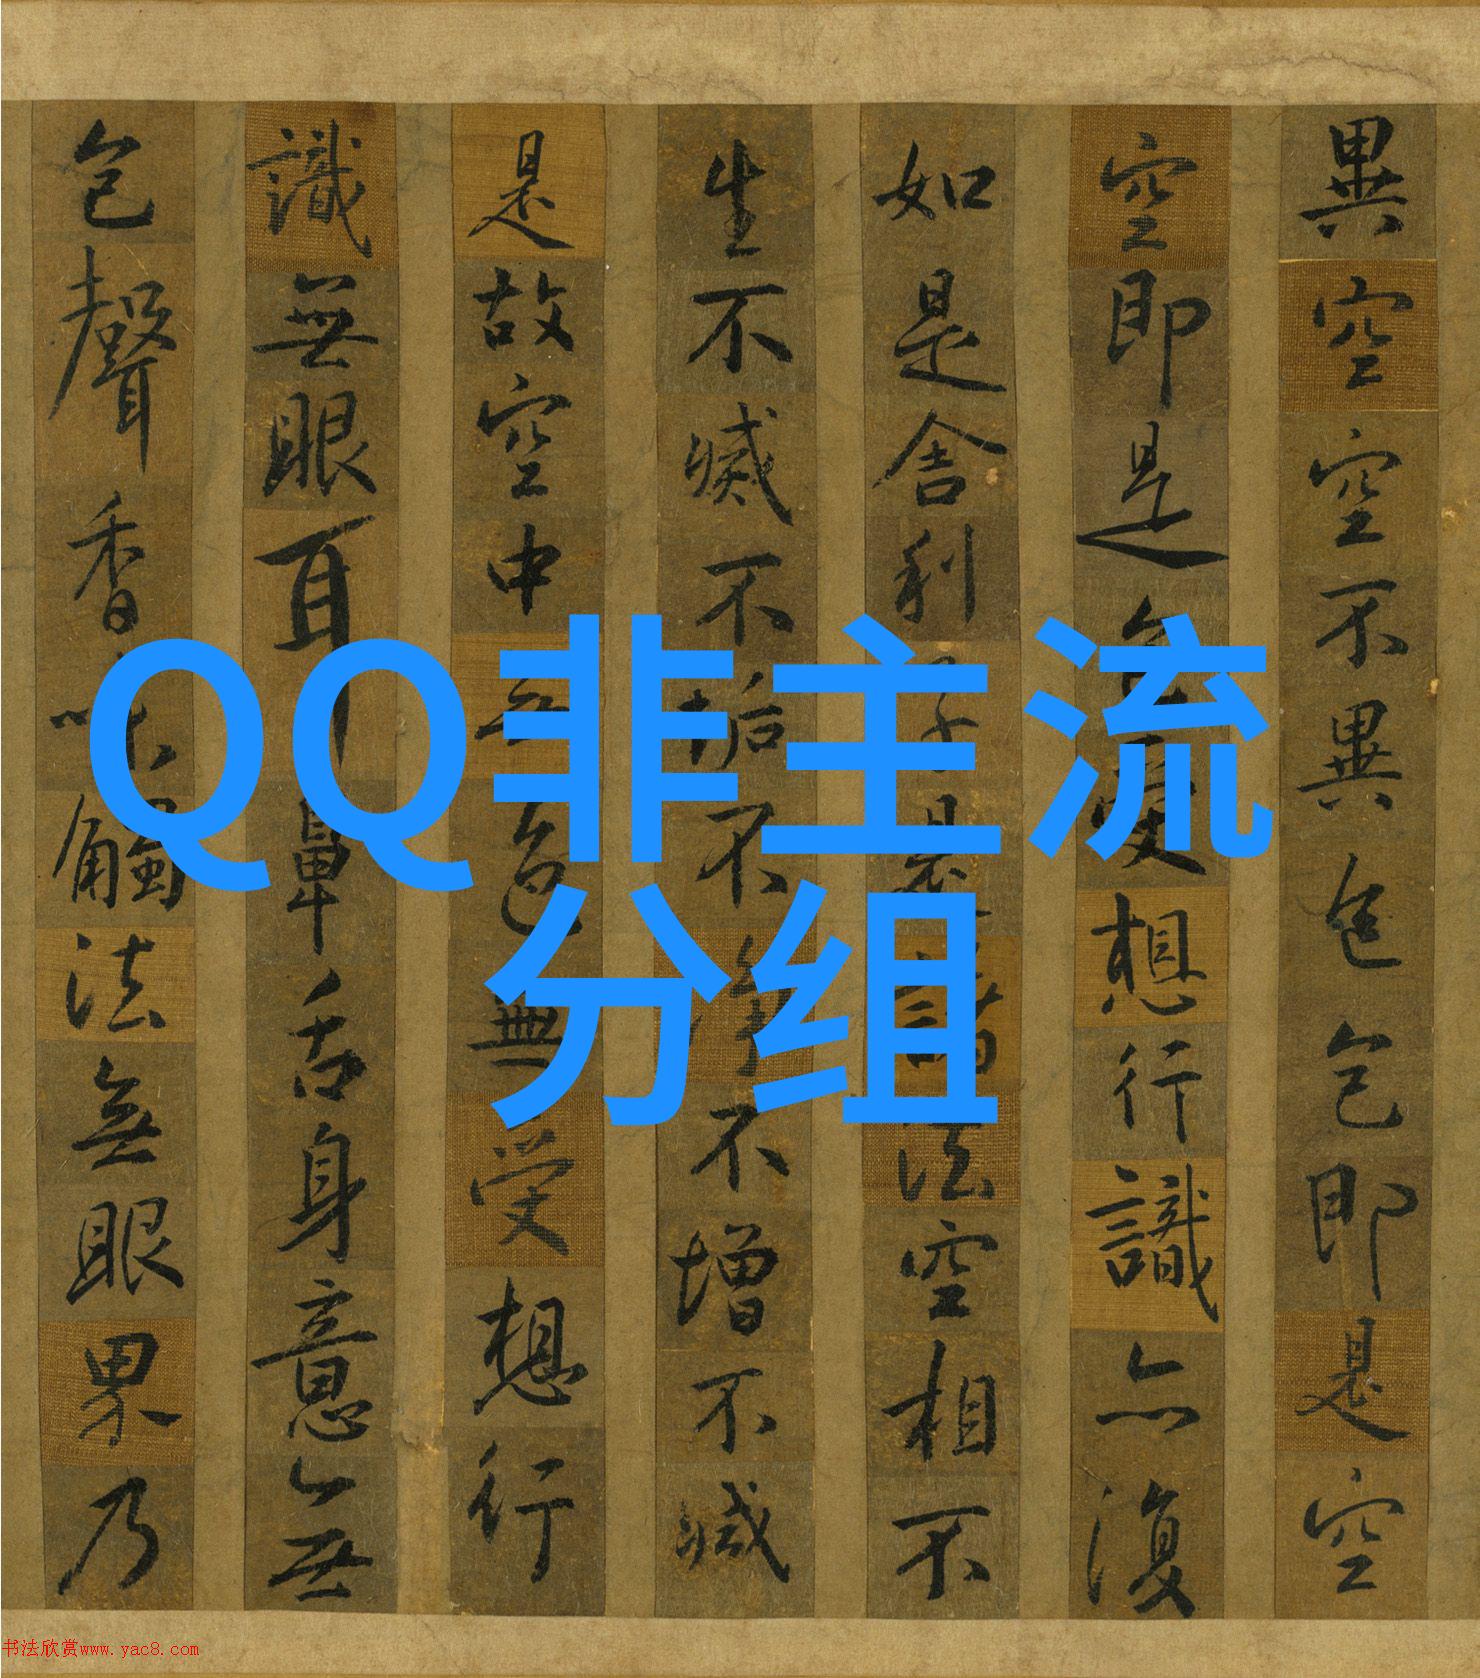 異空空不異色色即是空
空即是色受想行識亦復
如是舍利子是諸法空相不
生不滅不垢不淨不增不減
是故空中無色無受想行
識無眼耳鼻舌身意無
色聲香味觸法無眼界乃
QQ非主流
分组
书法欣赏www.yac8.com